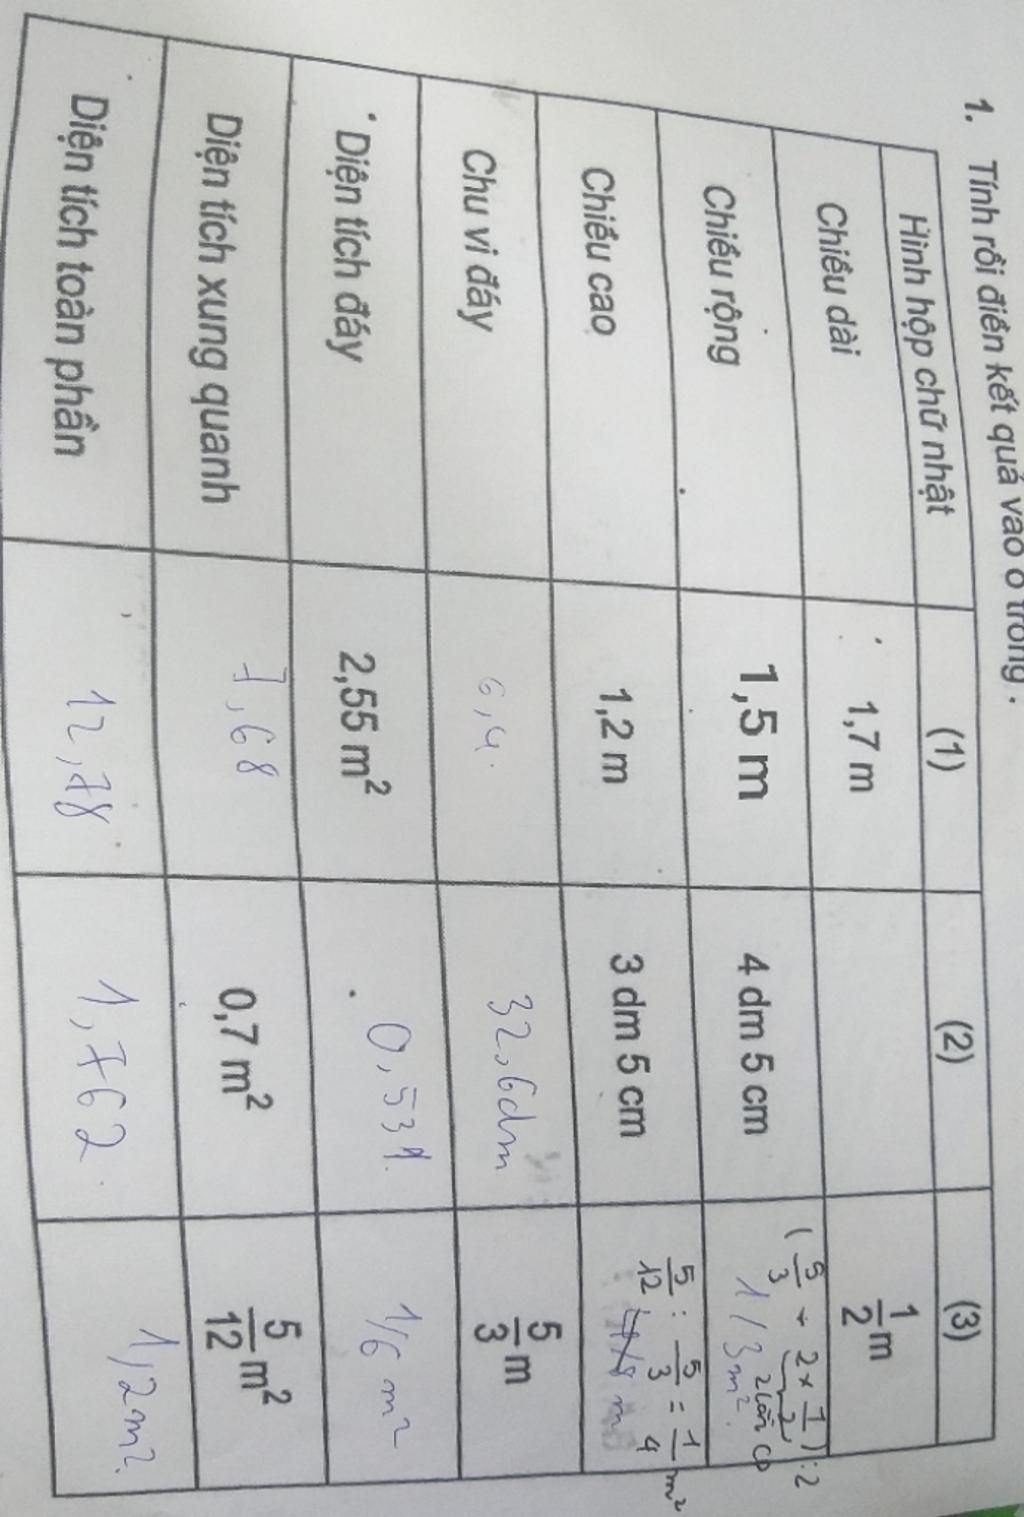 1. Tính rồi điền kết quả vào ô trống.
Hình hộp chữ nhật (1) (2) (3)
Chiều dài 1,7 m 1/2 m
(5/3 - 2 x 1/2) : 2
2 lần CD
Chiều rộng 1,5 m 4 dm 5 cm 1/3 m².
Chiều cao 1,2 m 3 dm 5 cm 5/12 : 5/3 = 1/4 m²
Chu vi đáy 6,4. 32,6dm 5/3 m
Diện tích đáy 2,55 m² 0,531. 1/6 m²
Diện tích xung quanh 7,68 0,7 m² 5/12 m²
Diện tích toàn phần 12,78 1,762. 1,2m².